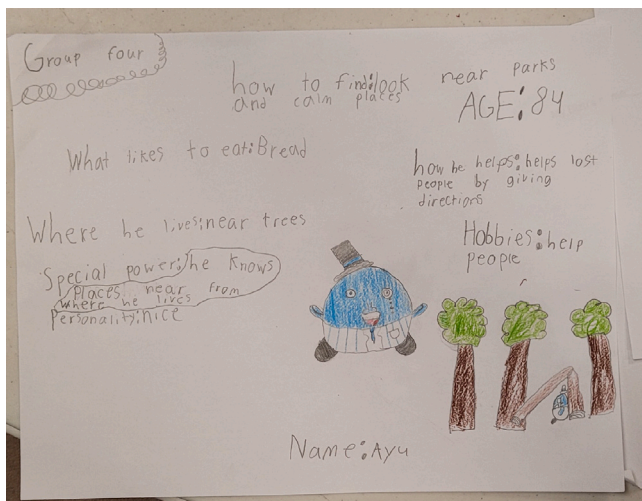 Group four
how to find:look near parks
and calm places
AGE:84
What likes to eat:Bread
how he helps:helps lost
people by giving
directions
Where he lives:near trees
Hobbies:help
people
Special power:he knows
places near from
where he lives
Personality:nice
Name:Ayu